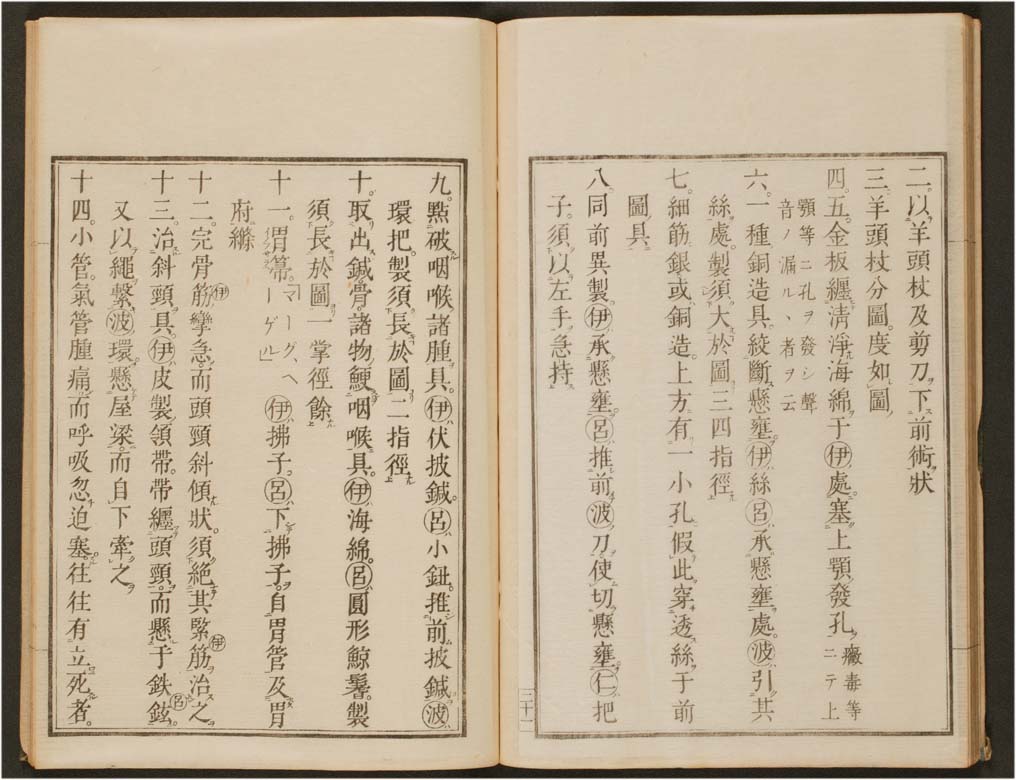 二。以羊頭杖及剪刀下前術狀
三。羊頭杖分圖。度如圖
四。五。金板纏清淨海綿于伊處。塞上顎發孔 癥毒等ニテ上
顎等ニ孔ヲ發シ聲
音ノ漏ル、者ヲ云
六。一種銅造具。絞斷懸壅。伊絲呂承懸壅處。波引其
絲處。製須大於圖三四指徑
七。細筋銀或銅造。上方有一小孔。假此穿透絲于前
圖具
八。同前異製。伊承懸壅。呂推前。波刀。使切懸壅。仁把
子。須以左手急持
三十一
九。點破咽喉諸腫具。伊伏披鍼。呂小鈕。推前披鍼。波
環把。製須長於圖二指徑
十。取出鍼骨諸物鯁咽喉具。伊海綿。呂圓形鯨鬚。製
須長於圖一掌徑餘
十一。胃箒。「マーグ、ヘーゲル」伊拂子。呂下拂子。自胃管及胃
府絛
十二。完骨筋伊攣急。而頭頸斜傾狀。須絕其緊筋伊治之
十三。治斜頸具。伊皮製領帶。帶纏頭頸。而懸于鉄鉉呂
又以繩繫波環。懸屋梁。而自下牽之
十四。小管。氣管腫痛。而呼吸忽迫塞。往往有立死者。